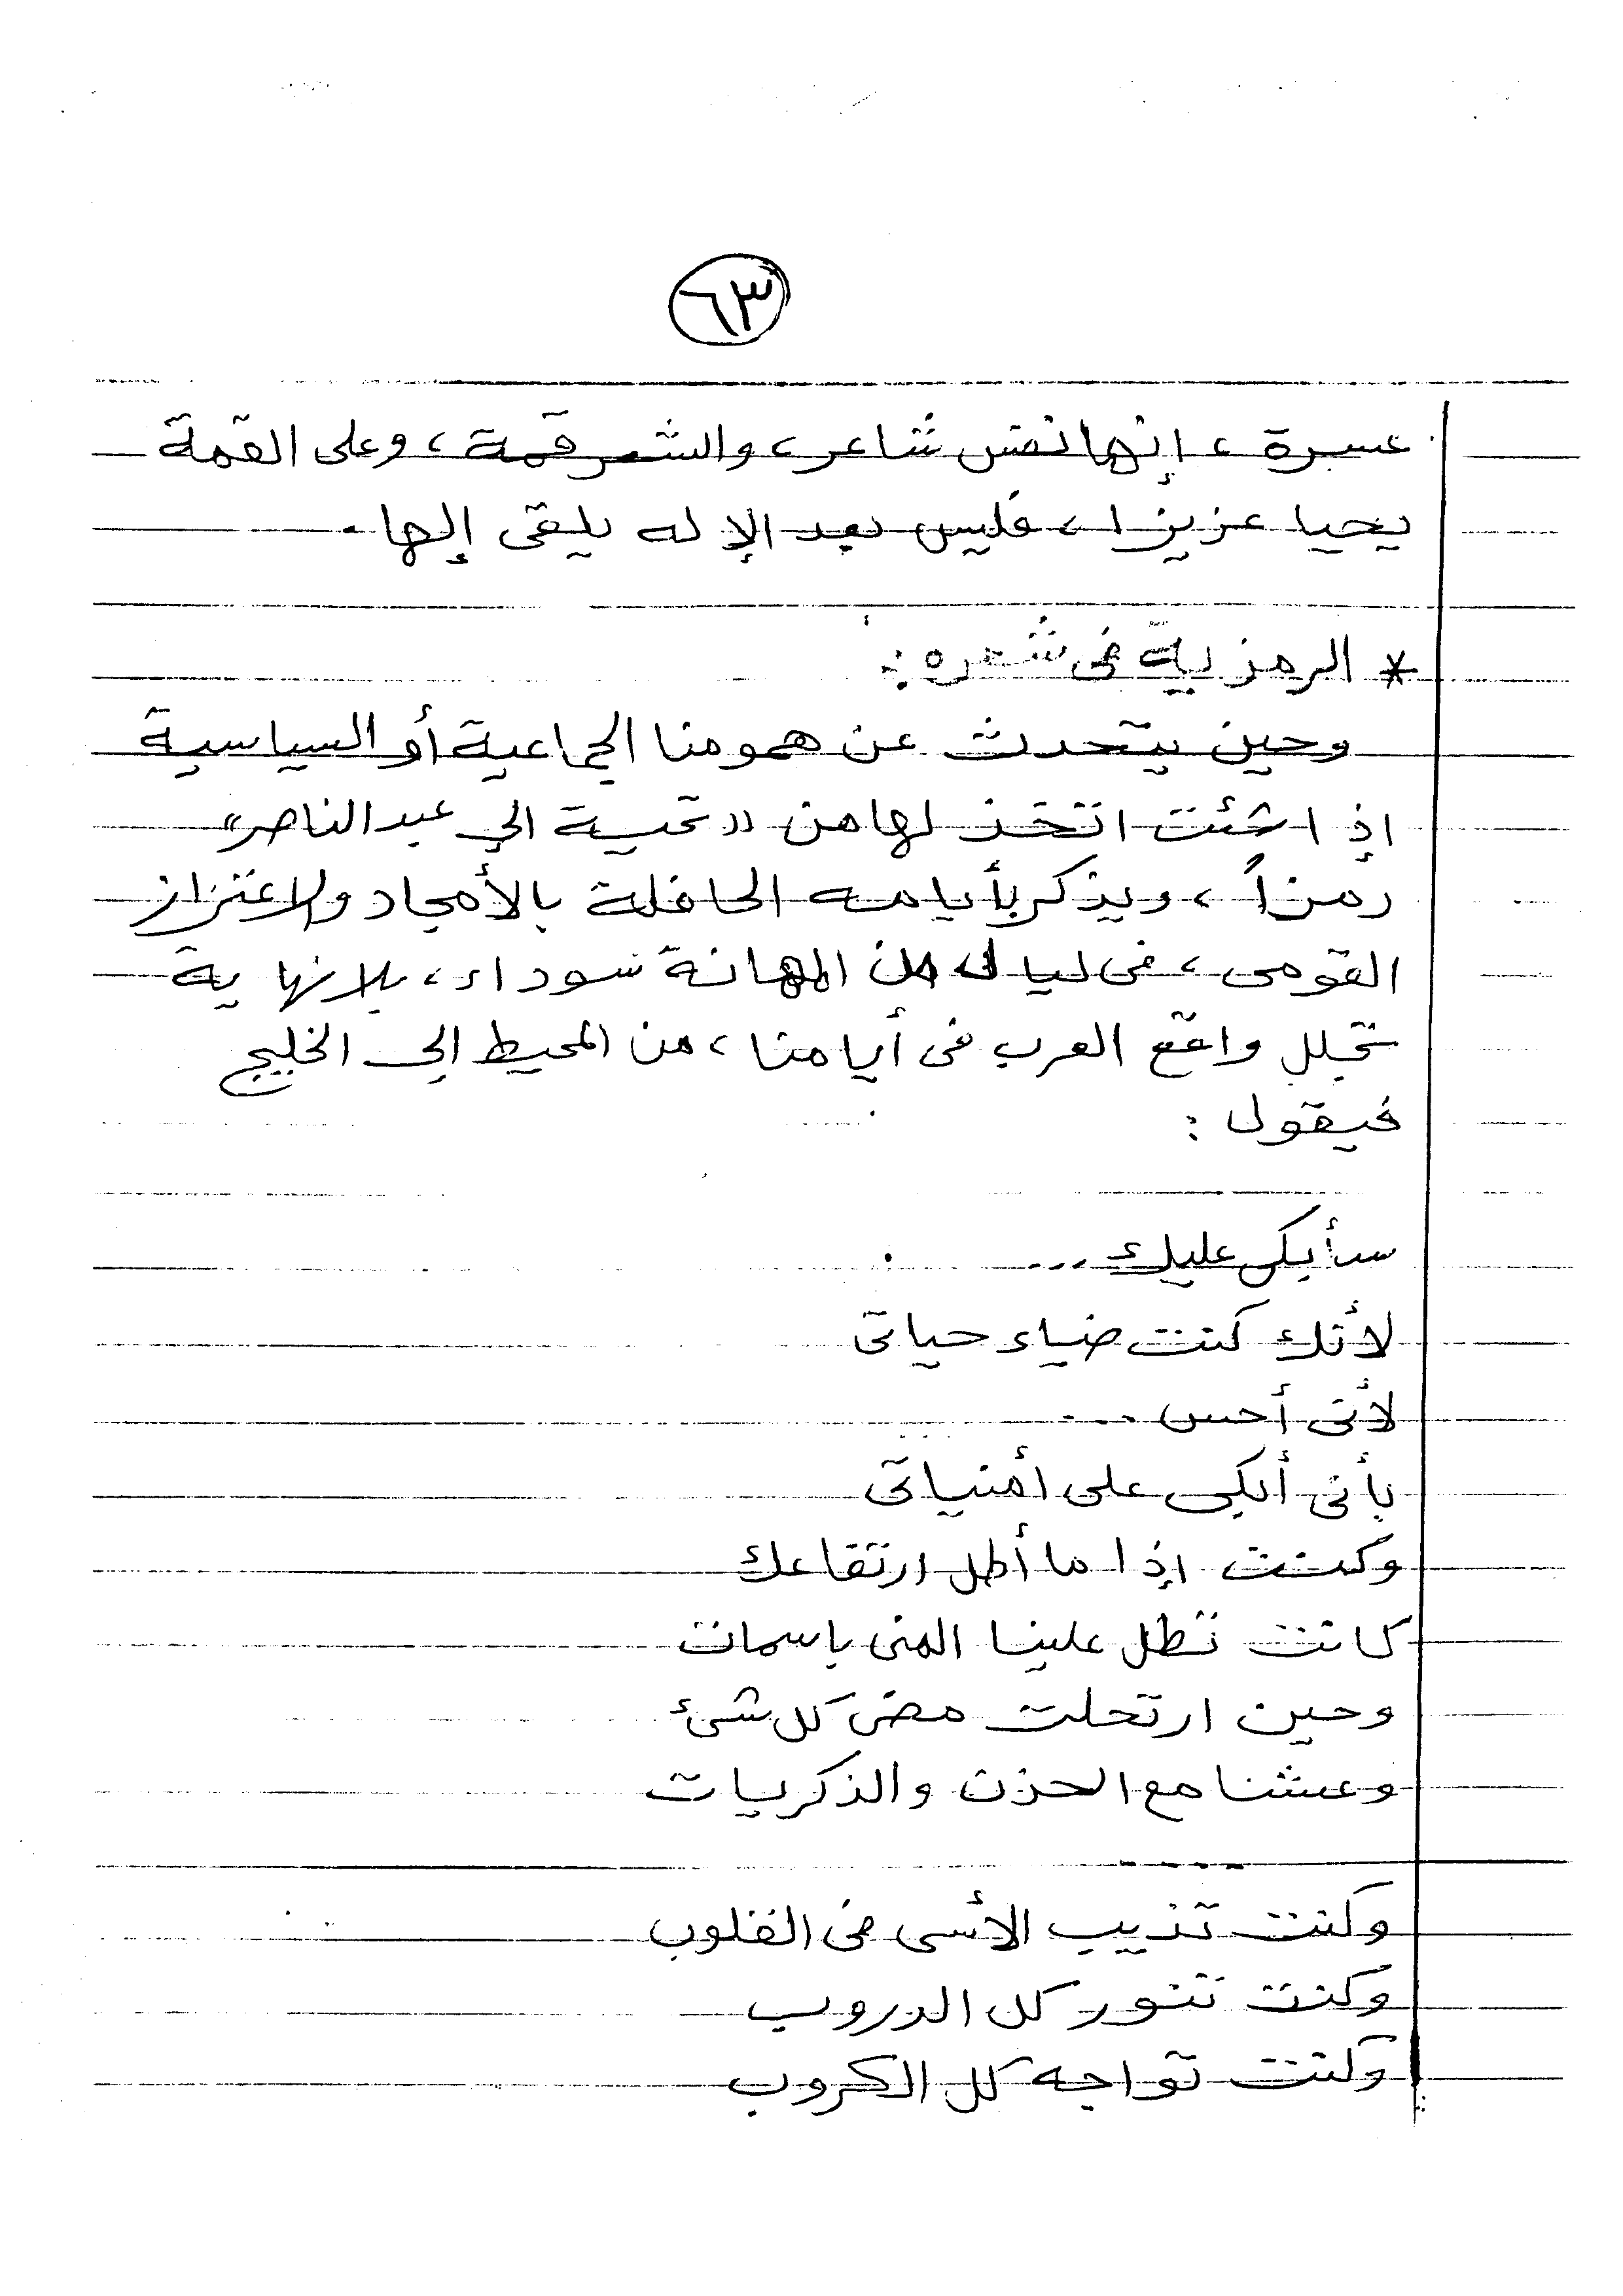 ٦٣
عسيرة، إنها نفس شاعر، والشعر قمة، وعلى القمة
يحيا عزيزا، فليس بعد الإله يلقى إلها.
* الرمزية فى شعره:
وحين يتحدث عن همومنا الجماعية أو السياسية
إذا شئت اتخذ لها من «تحية إلى عبد الناصر»
رمزاً، ويذكر بأيامه الحافلة بالأمجاد والاعتزاز
القومى، فى ليال من المهانة سوداء، بلا نهاية
تجلل واقع العرب فى أيامنا، من المحيط إلى الخليج
فيقول:
سأبكى عليك...
لأنك كنت ضياء حياتى
لأنى أحس...
بأنى أبكى على أمنياتى
وكنت إذا ما أطل ارتفاعك
كانت تطل علينا المنى باسمات
وحين ارتحلت مضى كل شئ
وعشنا مع الحزن والذكريات
وكنت تذيب الأسى فى القلوب
وكنت تنور كل الدروب
وكنت تواجه كل الكروب